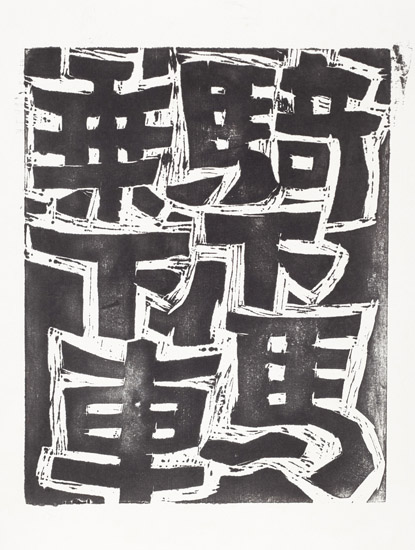 騎下馬
乗下車